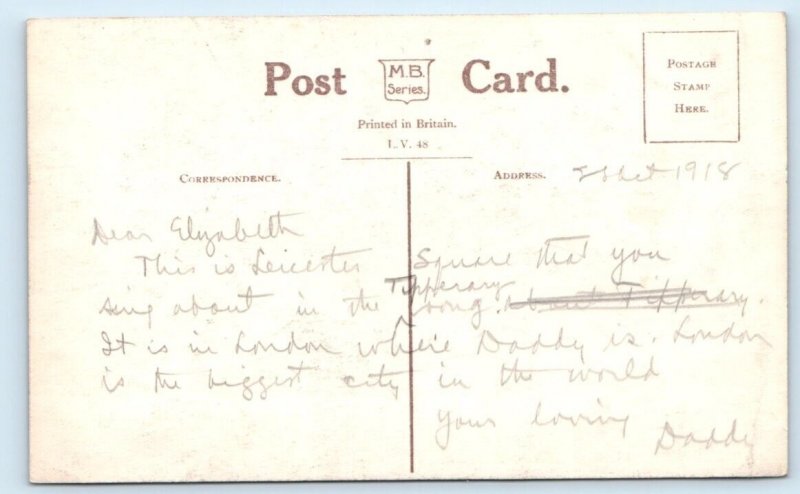 Post M.B. Series. Card.
POSTAGE
STAMP
HERE.
Printed in Britain.
L.V. 48
CORRESPONDENCE.
ADDRESS.
Oct 1918
Dear Elizabeth
This is Leicester Square that you
sing about in the Tipperary song. about Tipperary.
It is in London where Daddy is. London
is the biggest city in the world
your loving
Daddy